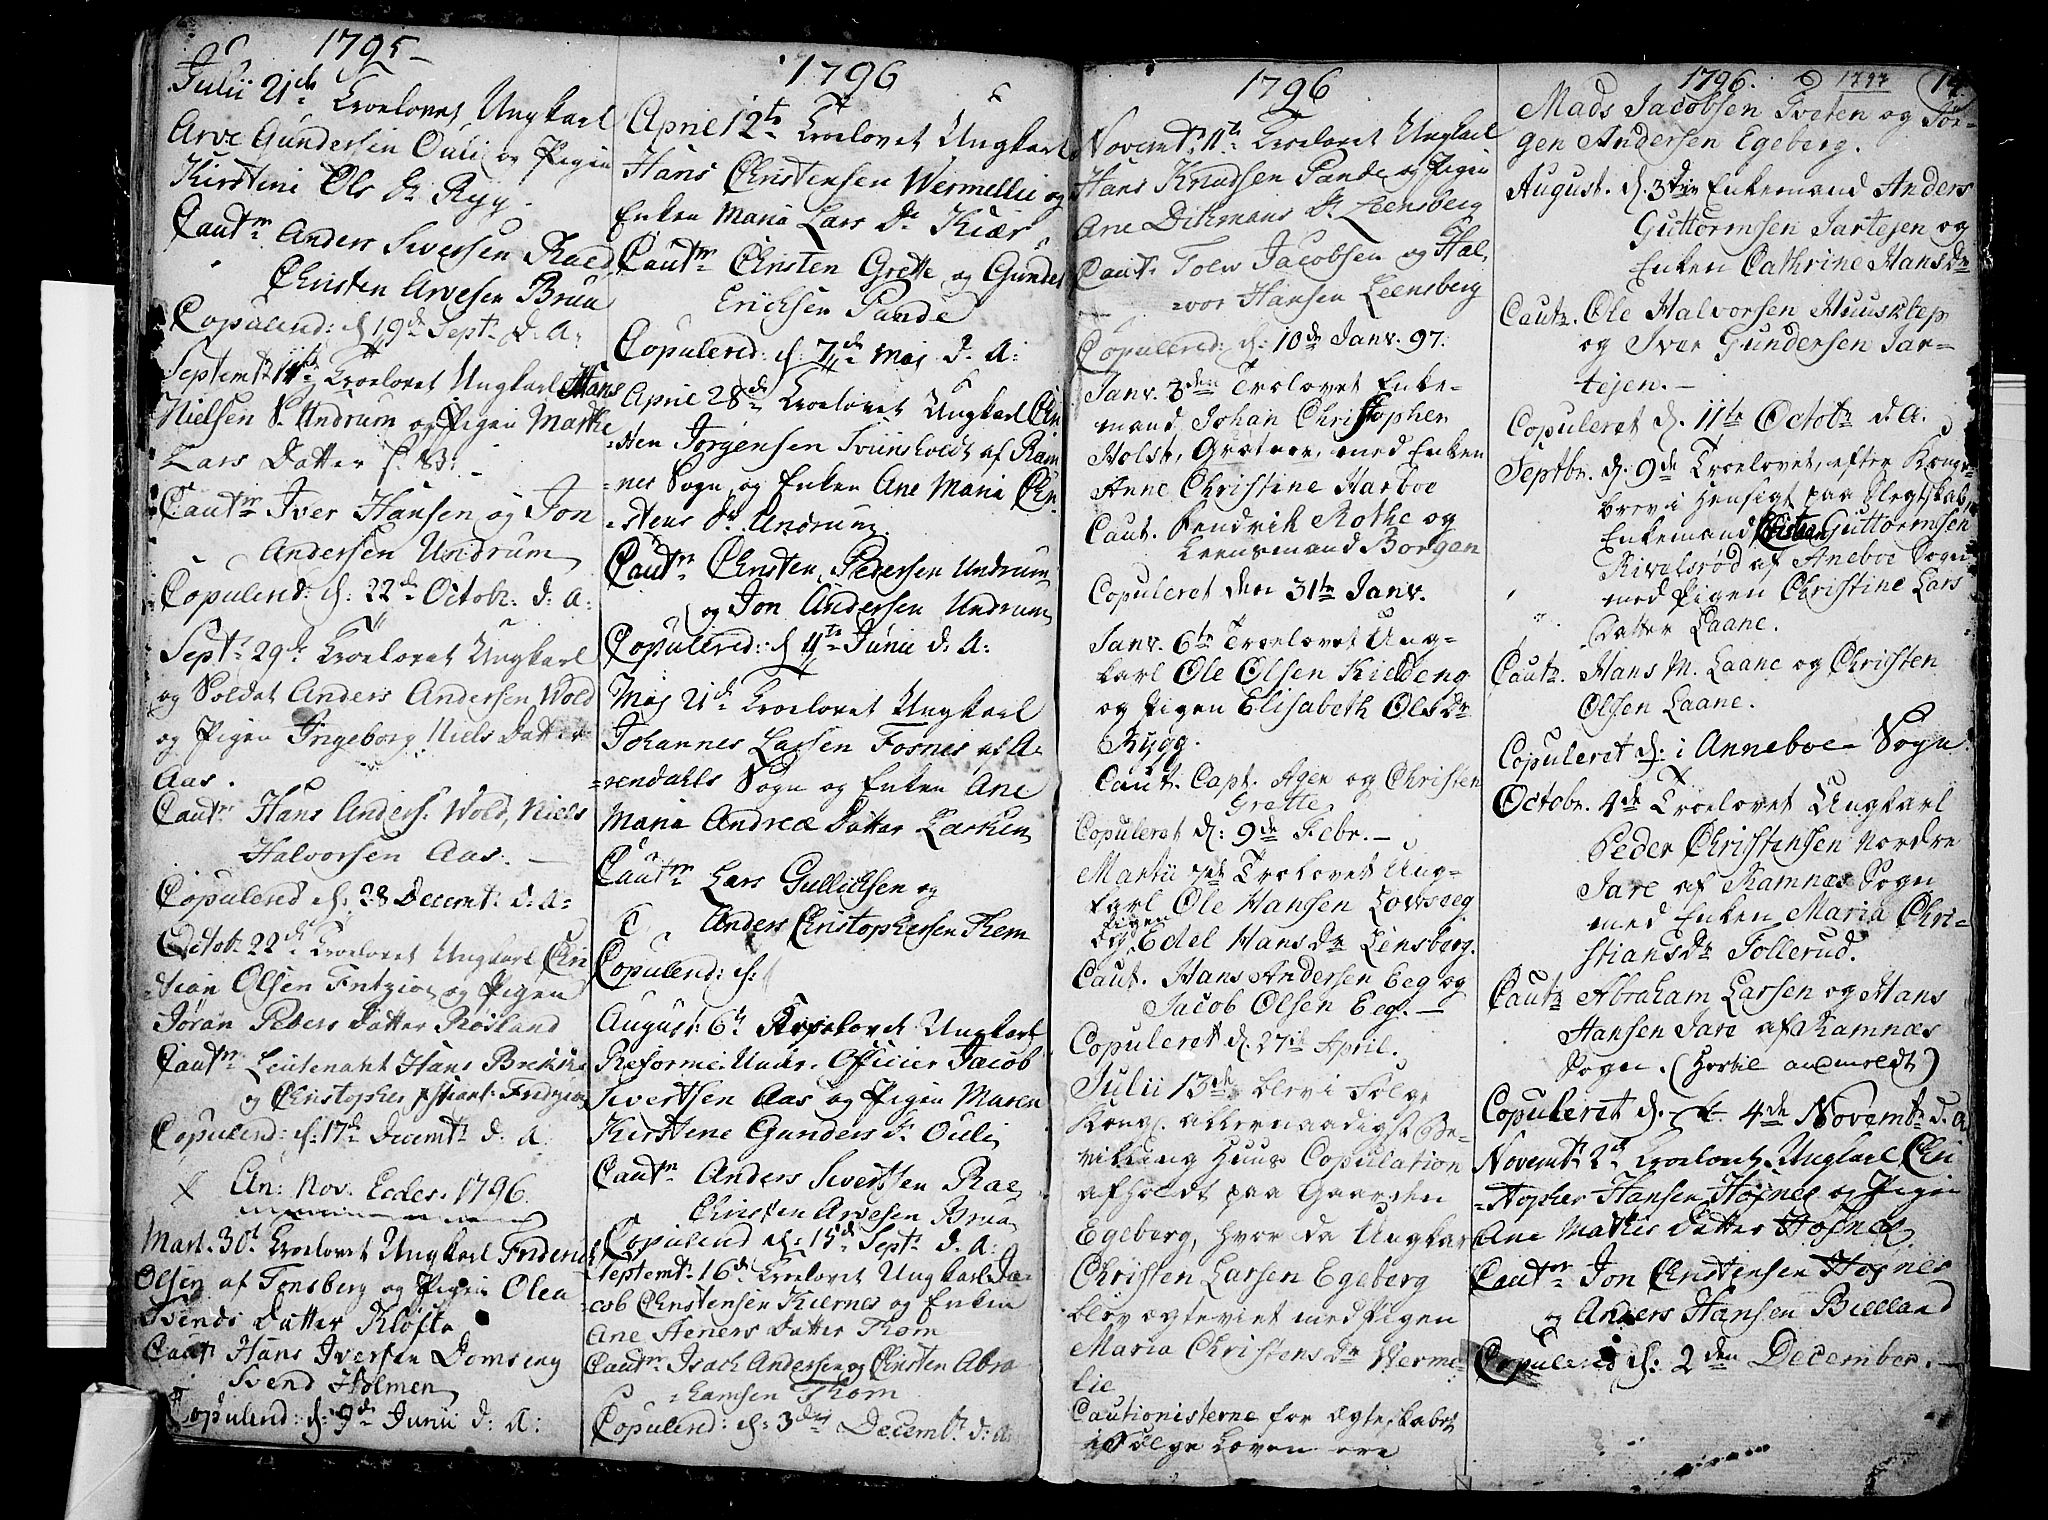 1795
Julii 21de Troelovet Ungkarl
Arve Gundersen Ouli og Pigen
Kirstine Ols Dr Ryg.
Cautn Anders Sivertsen Raed
Christen Arvesen Bruu
Copulered: d 19de Septr d. A:
Septemt: 11te Troelovet Ungkarl Hans
Nielsen S. Undrum og Pigen Mathe
Lars Datter
Cautn Iver Hansen og Jon
Andersen Undrum
Copulerd: d: 22de Octobr: d: A:
Septr 29de Troelovet Ungkarl
og Soldat Anders Andersen Wold
og Pigen Ingeborg Niels Datter
Aas.
Cautn Hans Anders: Wold, Niels
Halvorsen Aas. —
Copulered d: 28 Decemt: d: A:
Octob: 22de Troelovet Ungkarl Chri
stian Olsen Fritzio og Pigen
Jøran Peders Datter Røsland
Cautn Leutenant Hans
og Christopher Fritzio
Copulerd: d: 17de Decemt: d: A
An: Nov. Eccles. 1796
Mart. 30t Troelovet Ungkarl Friderich
Olsen af Tønsberg og Pigen Olea
Svends Datter Kløfte
Cautn Hans Iversen Domseng
Svend Holmen
Copulerd: d: 9de Junii d: A:
1796
April 12te Troelovet Ungkarl
Hans Christensen Wermellie og
Enken Maria Lars Dr Kiær
Cautn Christen Grette og Gunder
Erichsen Sande
Copulered: d: 7de Maj d: A:
April 28de Troelovet Ungkarl Chri
=sten Jørgensen Sviinsholdt af Ram
=nes Sogn og Enken Ane Maria Chri
=stens Dr Undrum
Cautn Christen Pedersen Undrum
og Jon Andersen Undrum
Copulered: d 4te Junii d: A:
Maj 21de Troelovet Ungkarl
Johannes Larsen Fosnes af A=
=rendahls Sogn og Enken Ane
Maria Andreæ Datter Larken
Cautn Lars Gullichsen og
Anders Christophersen Them
Copulerd: d:
August: 6te Troelovet Ungkarl
Reforme. Undr. Officier Jacob
Sivertsen Aas og Pigen Maren
Kirstine Gunders Dr Ouli
Cautn Anders Sivertsen Rae
Christen Arvesen Bruu
Copulerd d: 15de Septr d. A:
Septemt: 16de Troelovet Ungkarl Ja=
=cob Christensen Kiernes og Enken
Ane Steners Datter Thom
Cautn Isach Andersen og Christen Abra
=hamsen Thom
Copulerd: d: 3die Decembr: d: A:
1796
Novemt: 11te Troelovet Ungkarl
Hans Knudsen Sande og Pigen
Ane Dithmans Dr Leensberg
Caut: Tolv Jacobsen og Hal=
=vor Hansen Leensberg
Copulered: d: 10de Janv. 97:
Janv. 3den Troelovet Enke=
mand Johan Christopher
Holst, med Enken
Anne Christine Harboe
Caut. Hendrik Rothe og
Leensmand Borgen
Copuleret den 31te Janv.
Janv. 6te Troelovet Ung=
karl Ole Olsen Kieldeng
og Pigen Elisabeth Olsdr
Rygg.
Caut. Capt. Ager og Christen
Grette
Copuleret d: 9de Febr. —
Martii 7de Troelovet Ung=
karl Ole Hansen
Pigen
og Edel Hansdr Lensberg.
Caut. Hans Andersen Eeg og
Jacob Olsen Eeg. —
Copuleret d. 27de April.
Julii 13de blev i Følge
Kongl. allernaadigst Be=
villing Huus Copulation
afholdt paa Gaarden
Egeberg, hvor da Ungkarl
Christen Larsen Egeberg
blev ægteviet med Pigen
Maria Christensdr Werme=
lie
Cautionisterne for ægteskabet
i Følge Loven ere
1796. 1797 14.
Mads Jacobsen Tveten og Jør=
gen Andersen Egeberg.
August. d. 3die Enkemand Anders
Guttormsen Jartejen og
Enken Cathrine Hansdr
Cautr. Ole Halvorsen Huusklep
og Iver Gundersen Jar=
tejen. —
Copuleret d. 11te Octobr d. A.
Septbr. d. 9de Troelovet, efter Konge=
brev i Hensigt paa Slegtskab,
Enkemand Christen Guttormsen
Rivalsrød af Aneboe Sogn
med Pigen Christine Lars
Datter Laane.
Cautr. Hans M. Laane og Christen
Olsen Laane.
Copuleret d: i Anneboe Sogn
Octobr. 4de Troelovet Ungkarl
Peder Christensen Nordre
Jare af Ramnæs Sogn
med Enken Maria Chri=
stiansdr Tollerud.
Cautr Abraham Larsen og Hans
Hansen Jare af Ramnæs
Sogn. (hertil anmeldt)
Copuleret d. 4de Novembr d. A
Novemt: 2de Troelovet Ungkarl Chri
=stopher Hansen Højnes og Pigen
Ane Mathis Datter Høsnæs
Cautn Jon Christensen Høgnes
og Anders Hansen Bielland
Copulered d: 2den December. —